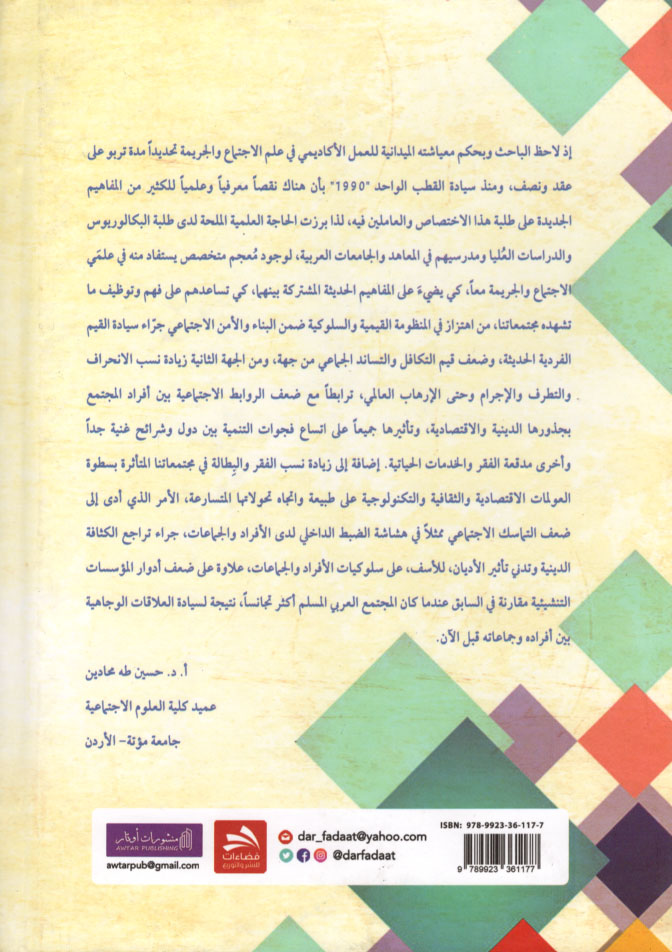 إذ لاحظ الباحث وبحكم معيشاته الميدانية للعمل الأكاديمي في علم الاجتماع والجريمة تحديداً مدة تربو على
عقد ونصف، ومنذ سيادة القطب الواحد "1990" بأن هناك نقصاً معرفياً وعلمياً للكثير من المفاهيم
الجديدة على طلبة هذا الاختصاص والعاملين فيه، لذا برزت الحاجة العلمية الملحة لدى طلبة البكالوريوس
والدراسات العُليا ومدرسيهم في المعاهد والجامعات العربية، لوجود مُعجم متخصص يستفاد منه في علمَي
الاجتماع والجريمة معاً، كي يضيءَ على المفاهيم الحديثة المشتركة بينهما، كي تساعدهم على فهم وتوظيف ما
تشهده مجتمعاتنا، من اهتزاز في المنظومة القيمية والسلوكية ضمن البناء والأمن الاجتماعي جرّاء سيادة القيم
الفردية الحديثة، وضعف قيم التكافل والتساند الجماعي من جهة، ومن الجهة الثانية زيادة نسب الانحراف
والتطرف والإجرام وحتى الإرهاب العالمي، ترابطاً مع ضعف الروابط الاجتماعية بين أفراد المجتمع
بجذورها الدينية والاقتصادية، وتأثيرها جميعاً على اتساع فجوات التنمية بين دول وشرائح غنية جداً
وأخرى مدقعة الفقر والخدمات الحياتية. إضافة إلى زيادة نسب الفقر والبِطالة في مجتمعاتنا المتأثرة بسطوة
العولمات الاقتصادية والثقافية والتكنولوجية على طبيعة واتجاه تحولاتها المتسارعة، الأمر الذي أدى إلى
ضعف التماسك الاجتماعي ممثلاً في هشاشة الضبط الداخلي لدى الأفراد والجماعات، جراء تراجع الكثافة
الدينية وتدني تأثير الأديان، للأسف، على سلوكيات الأفراد والجماعات، علاوة على ضعف أدوار المؤسسات
التنشيئية مقارنة في السابق عندما كان المجتمع العربي المسلم أكثر تجانساً، نتيجة لسيادة العلاقات الوجاهية
بين أفراده وجماعاته قبل الآن.
أ. د. حسين طه محادين
عميد كلية العلوم الاجتماعية
جامعة مؤتة– الأردن
منشورات أوتار
AWTAR PUBLISHING
awtarpub@gmail.com
فضاءات
للنشر والتوزيع
dar_fadaat@yahoo.com
@darfadaat
ISBN: 978-9923-36-117-7
9 789923 361177